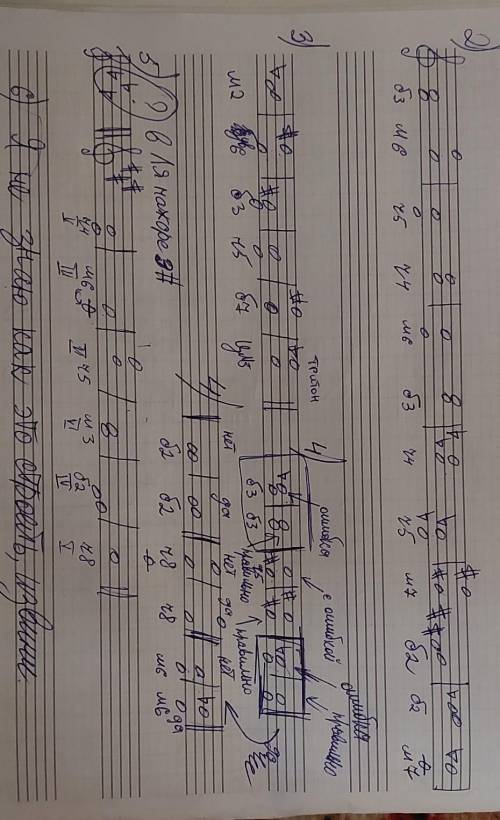 2)
б3 м6 ч5 ч4 м6 б3 ч4 ч5 м7 б2 б2 м7
3)
м2 б3 ч5 б7
тритон
4)
ошибка
б3 б3
правильно
с ошибкой
ошибка
правильно
правильно
4)
нет да нет да нет да
б2 б2 ч8 ч8 м6 м6
5) В Ля мажоре 3#
ч4 м6 ч5 м3 б2 ч8
V III VI VI IV V
6) Я не знаю как это строить, извини.